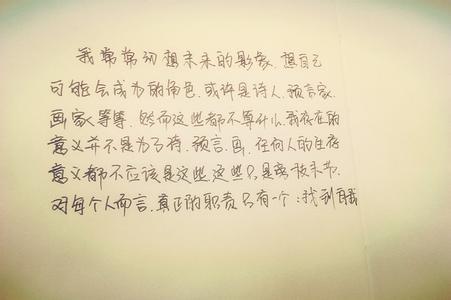 我常常幻想未来的影象、想自己
可能会成为的角色、或许是诗人、预言家、
画家等等、然而这些都不算什么、我存在的
意义并不是为了诗、预言、画、任何人的生存
意义都不应该是这些、这些只是旁枝末节、
对每个人而言、真正的职责只有一个：找到自我